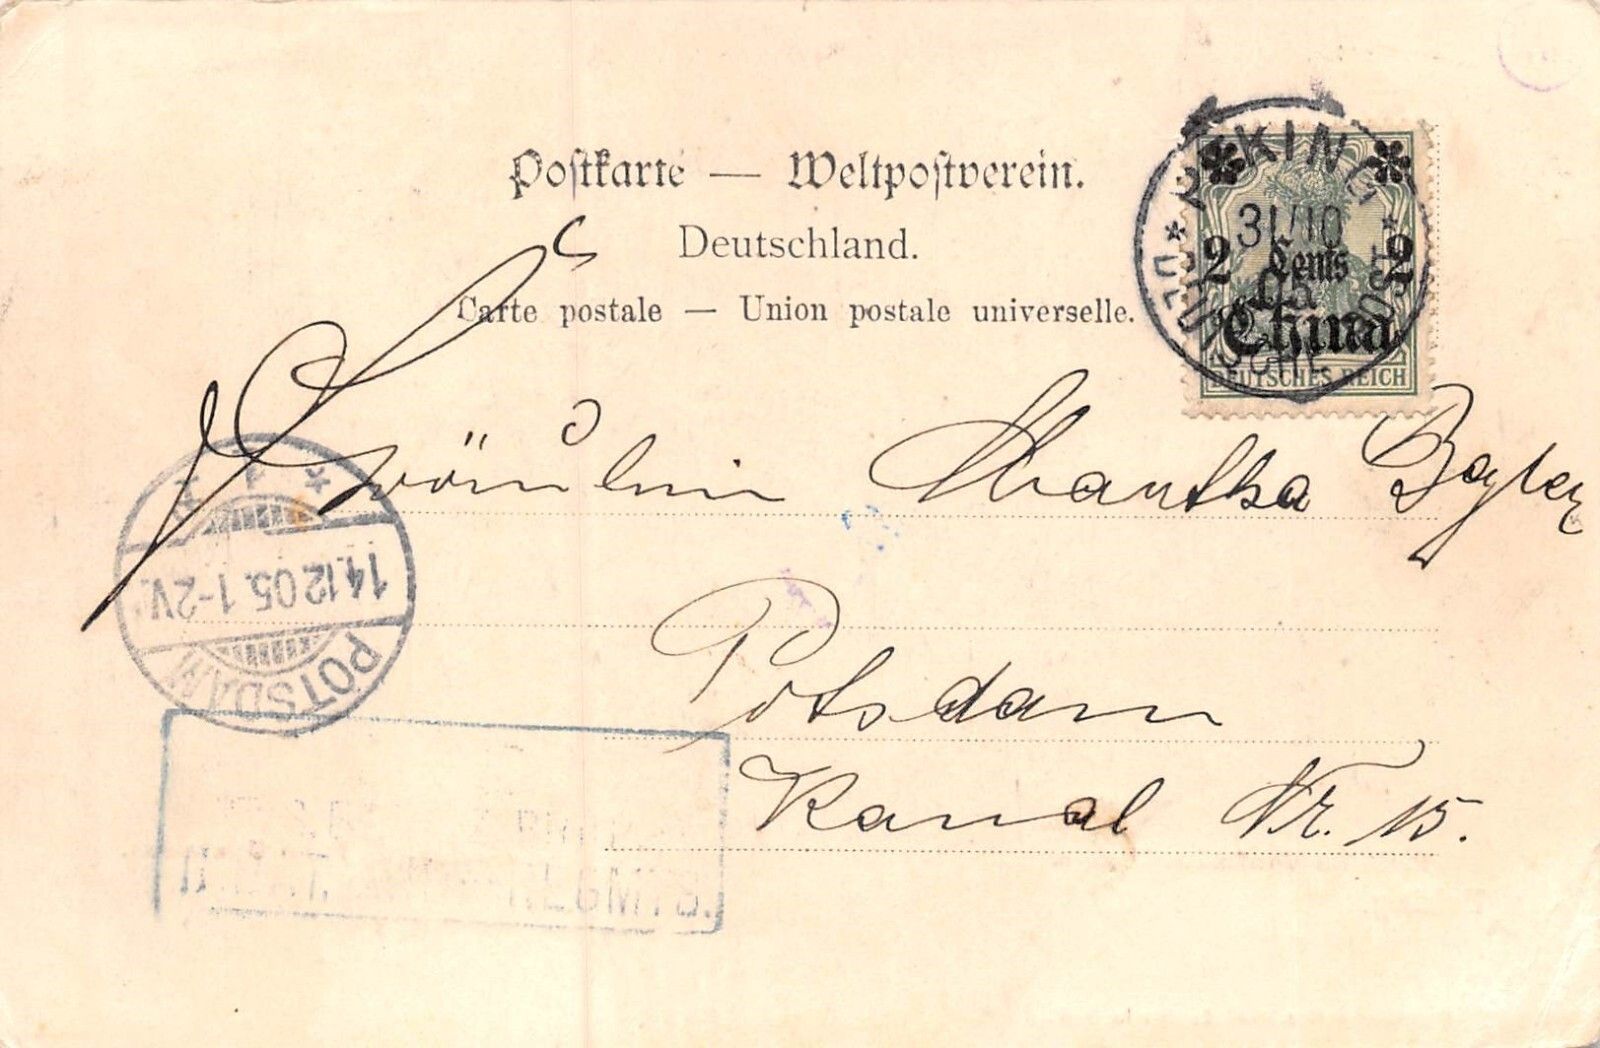 Postkarte — Weltpostverein.
Deutschland.
Carte postale — Union postale universelle.
PEKING
31/10
05
* DEUTSCHE POST *
2 Cents 2
China
DEUTSCHES REICH
Fräulein Martha
Potsdam
Kanal Nr. 15.
POTSDAM
14.12.05. 1-2V.